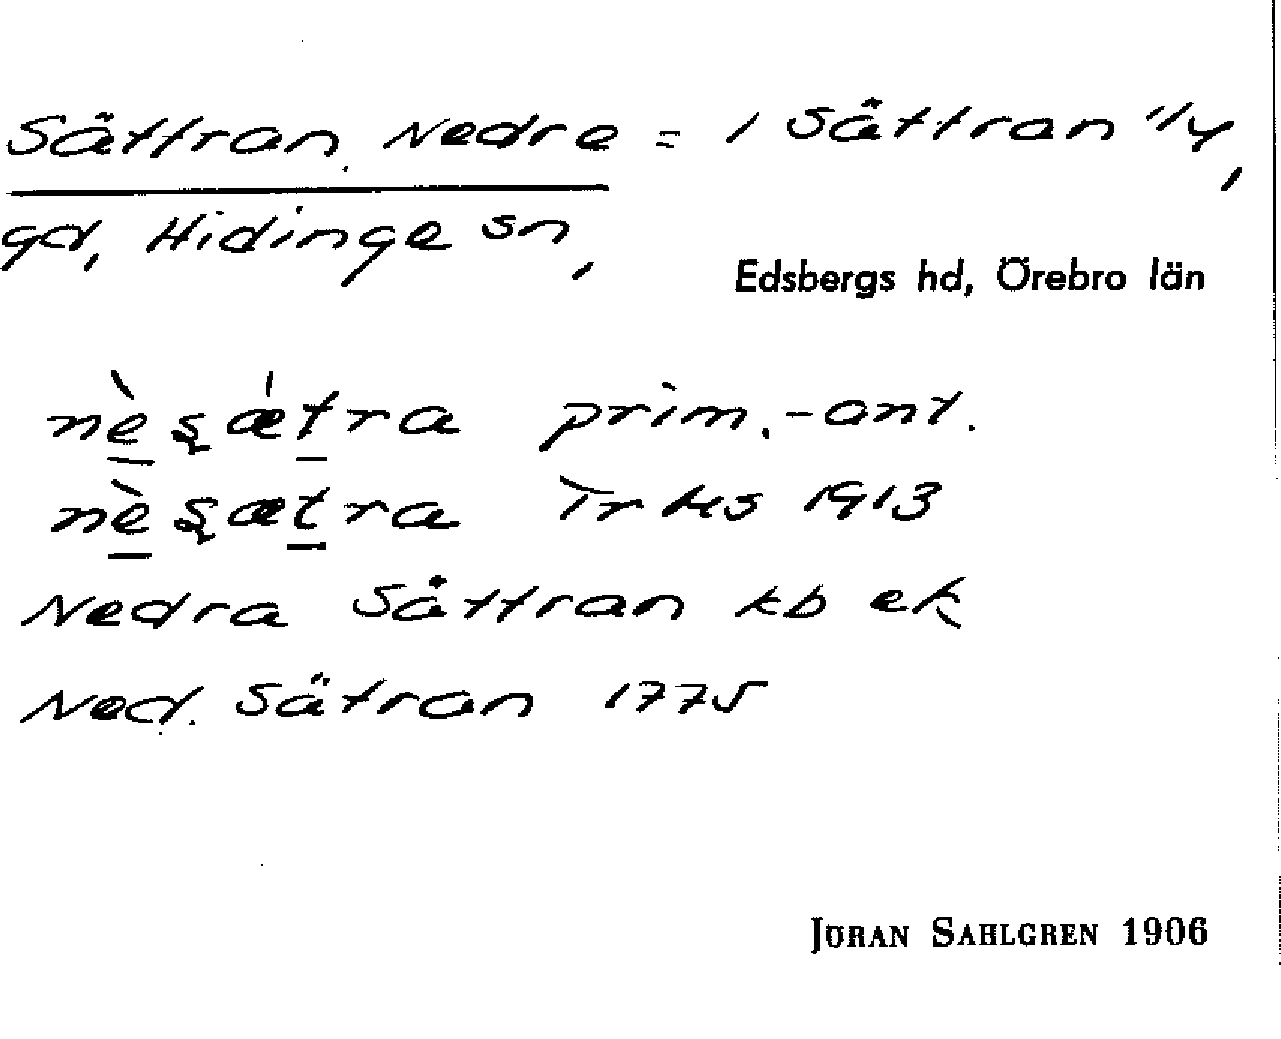 Sättran, Nedre = 1 Sättran 1/4,
gd, Hidinge sn,
Edsbergs hd, Örebro län
nèsǽtra prim.-ant.
nèsætra Trks 1913
Nedra Sättran kb ek
Ned. Sätran 1775
JÖRAN SAHLGREN 1906